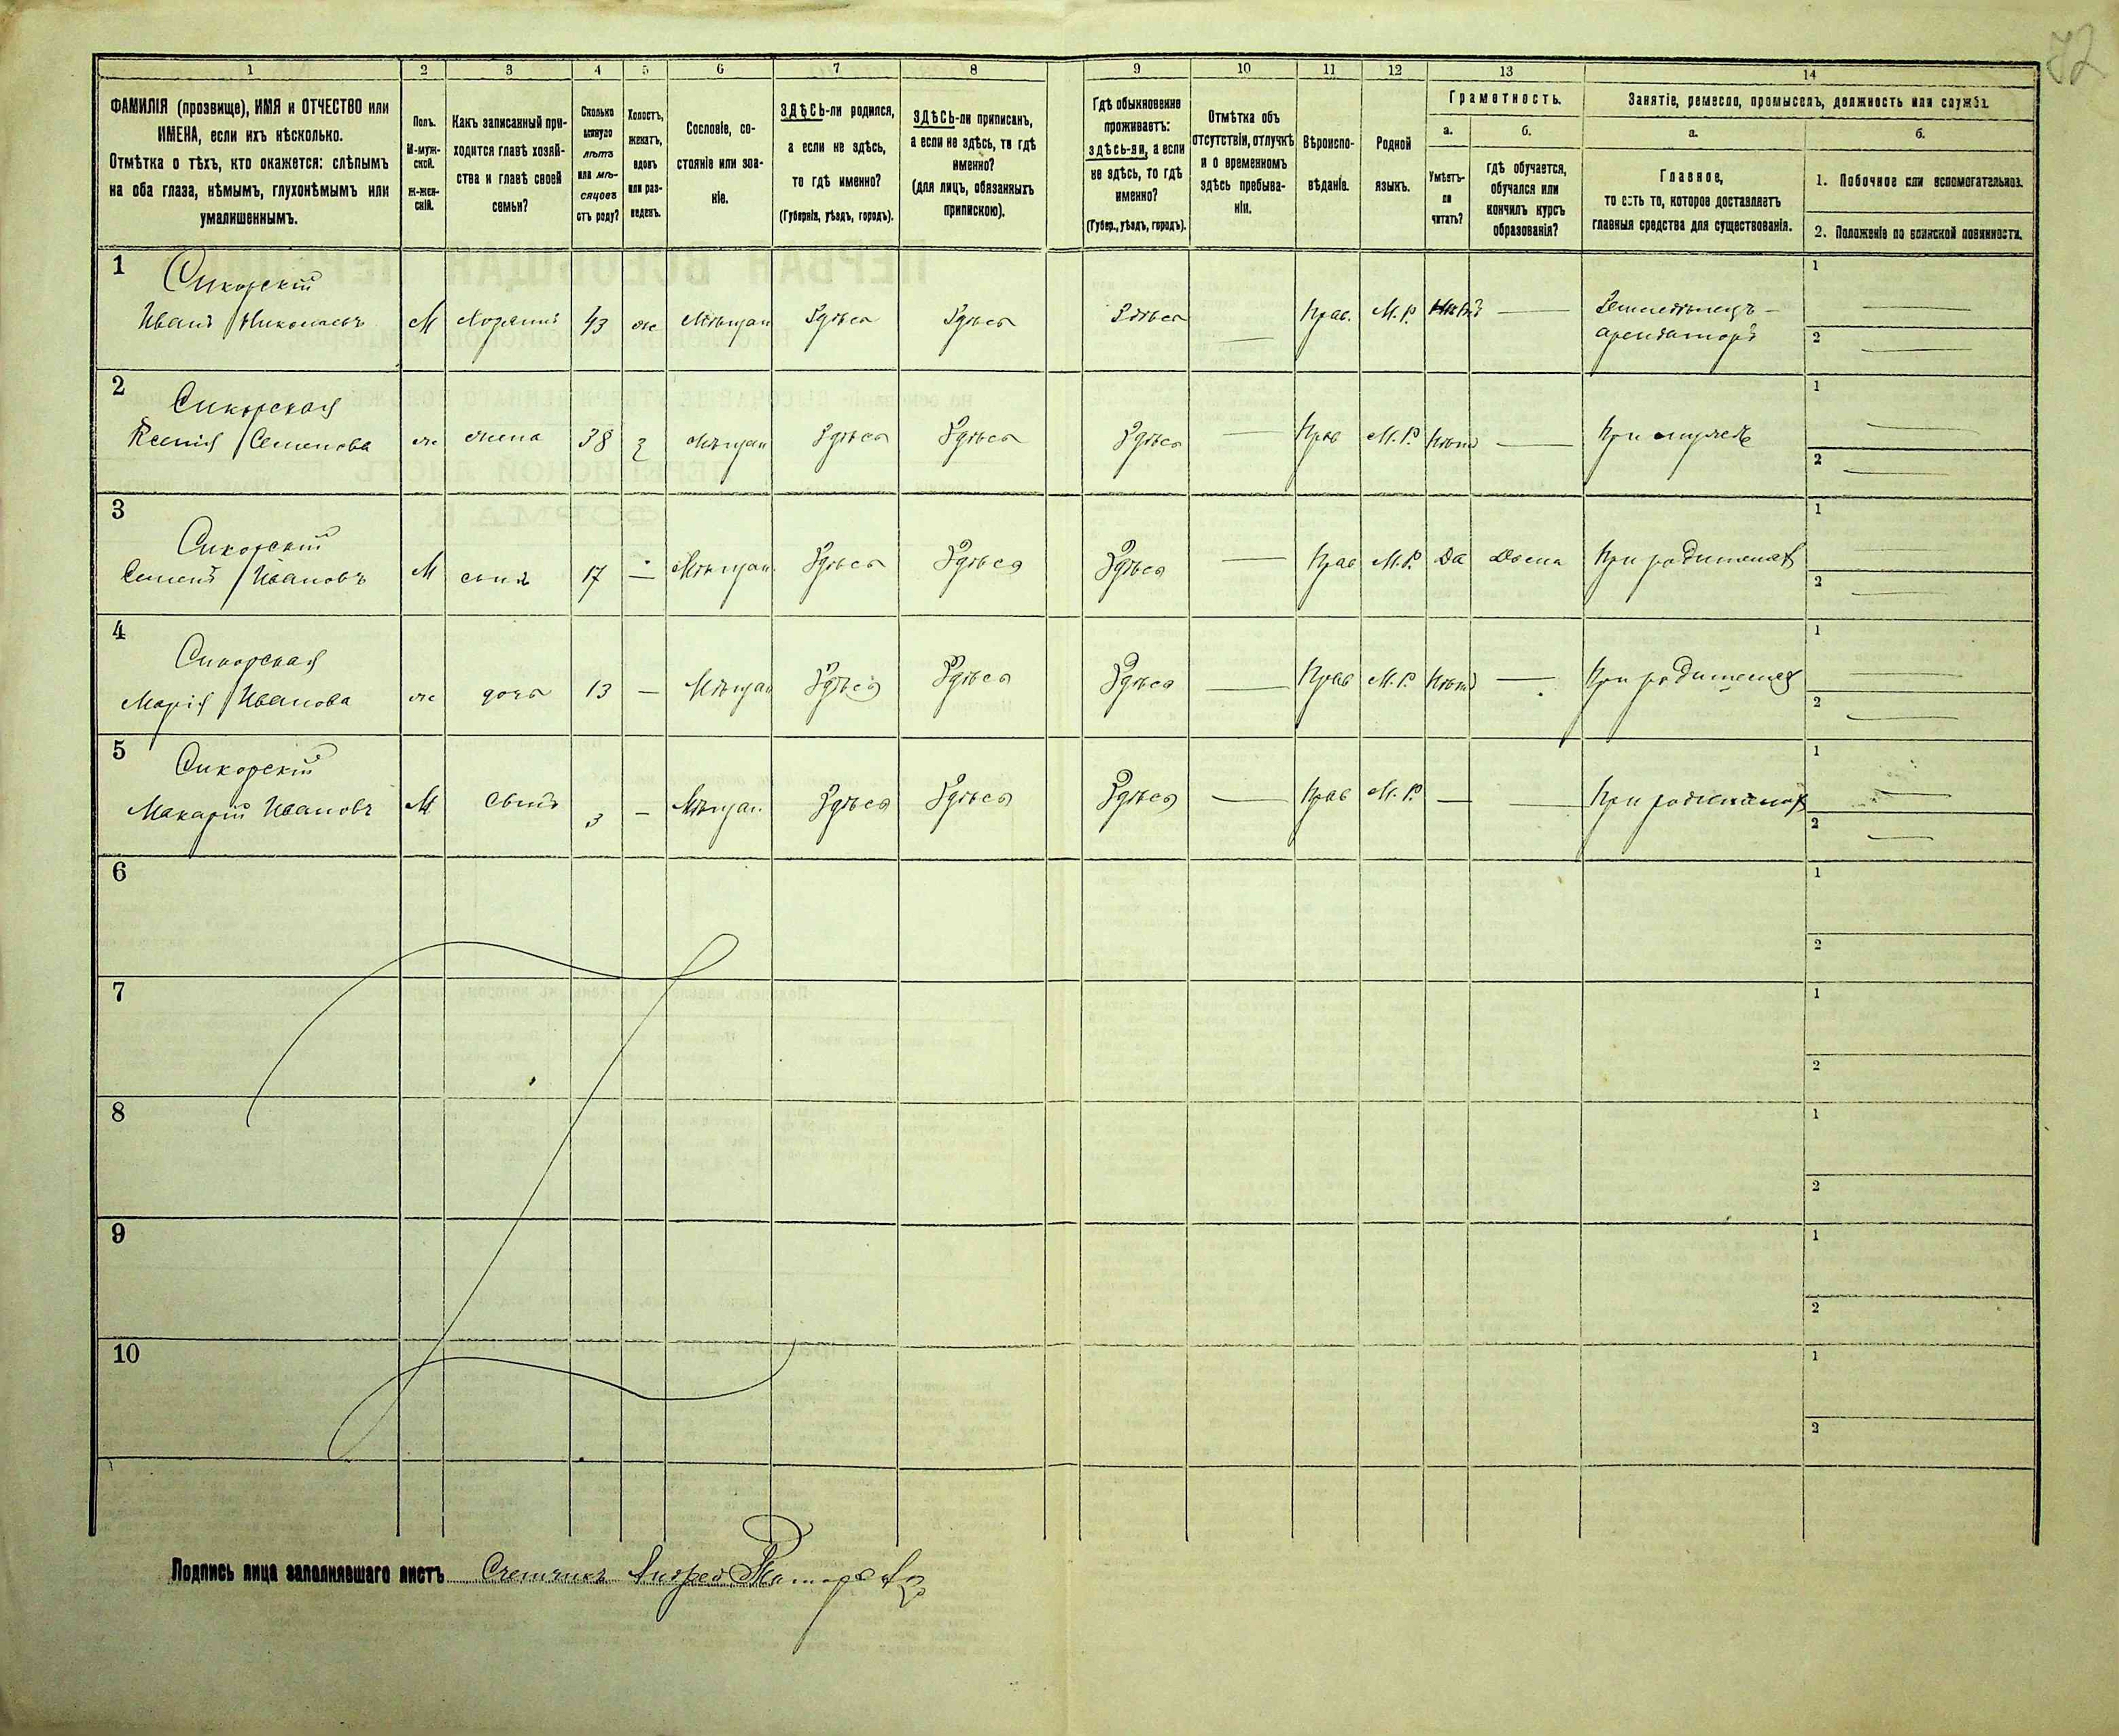 72
1 2 3 4 5 6 7 8 9 10 11 12 13 14
ФАМИЛІЯ (прозвище), ИМЯ и ОТЧЕСТВО или
ИМЕНА, если ихъ нѣсколько.
Отмѣтка о тѣхъ, кто окажется: слѣпымъ
на оба глаза, нѣмымъ, глухонѣмымъ или
умалишеннымъ.
Полъ.
М-муж-
ской.
Ж-жен-
скій.
Какъ записанный при-
ходится главѣ хозяй-
ства и главѣ своей
семьи?
Сколько
минуло
лѣтъ
или мѣ-
сяцовъ
отъ роду?
Холостъ,
женатъ,
вдовъ
или раз-
веденъ.
Сословіе, со-
стояніе или зва-
ніе.
ЗДѢСЬ-ли родился,
а если не здѣсь,
то гдѣ именно?
(Губернія, уѣздъ, городъ).
ЗДѢСЬ-ли приписанъ,
а если не здѣсь, то гдѣ
именно?
(для лицъ, обязанныхъ
припискою).
Гдѣ обыкновенно
проживаетъ:
здѣсь-ли, а если
не здѣсь, то гдѣ
именно?
(Губер., уѣздъ, городъ).
Отмѣтка объ
отсутствіи, отлучкѣ
и о временномъ
здѣсь пребыва-
ніи.
Вѣроиспо-
вѣданіе.
Родной
языкъ.
Грамотность.
а.
Умѣетъ-
ли
читать?
б.
гдѣ обучается,
обучался или
кончилъ курсъ
образованія?
Занятіе, ремесло, промыселъ, должность или служба.
а.
Главное,
то есть то, которое доставляетъ
главныя средства для существованія.
б.
1. Побочное или вспомогательное.
2. Положеніе по воинской повинности.
1 Сикорскій 1
Иванъ Николаевъ М Хозяинъ 43 ж Мѣщан Здѣсь Здѣсь Здѣсь — Прав. М.Р. Нѣтъ — Земледѣлецъ –
арендаторъ 2
2 Сикорская 1
Ксенія Семенова ж жена 38 з Мѣщан Здѣсь Здѣсь Здѣсь — Прав М.Р. Нѣтъ — При мужѣ
2
3 Сикорскій 1
Семенъ Ивановъ М сынъ 17 — Мѣщан. Здѣсь Здѣсь Здѣсь — Прав М.Р. Да Дома При родителях
2
4 Сикорская 1
Марія Иванова ж дочь 13 — Мѣщан Здѣсь Здѣсь Здѣсь — Прав М.Р. Нѣтъ — При родителях
2
5 Сикорскій 1
Макарій Ивановъ М сынъ 3 — Мѣщан. Здѣсь Здѣсь Здѣсь — Прав М.Р. — — При родителях
2
6 1
2
7 1
2
8 1
2
9 1
2
10 1
2
Подпись лица заполнявшаго листъ Счетчикъ Андрей